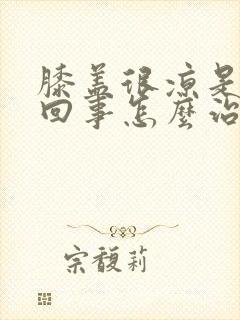 膝盖很凉是
回事怎麼治
宗馥莉